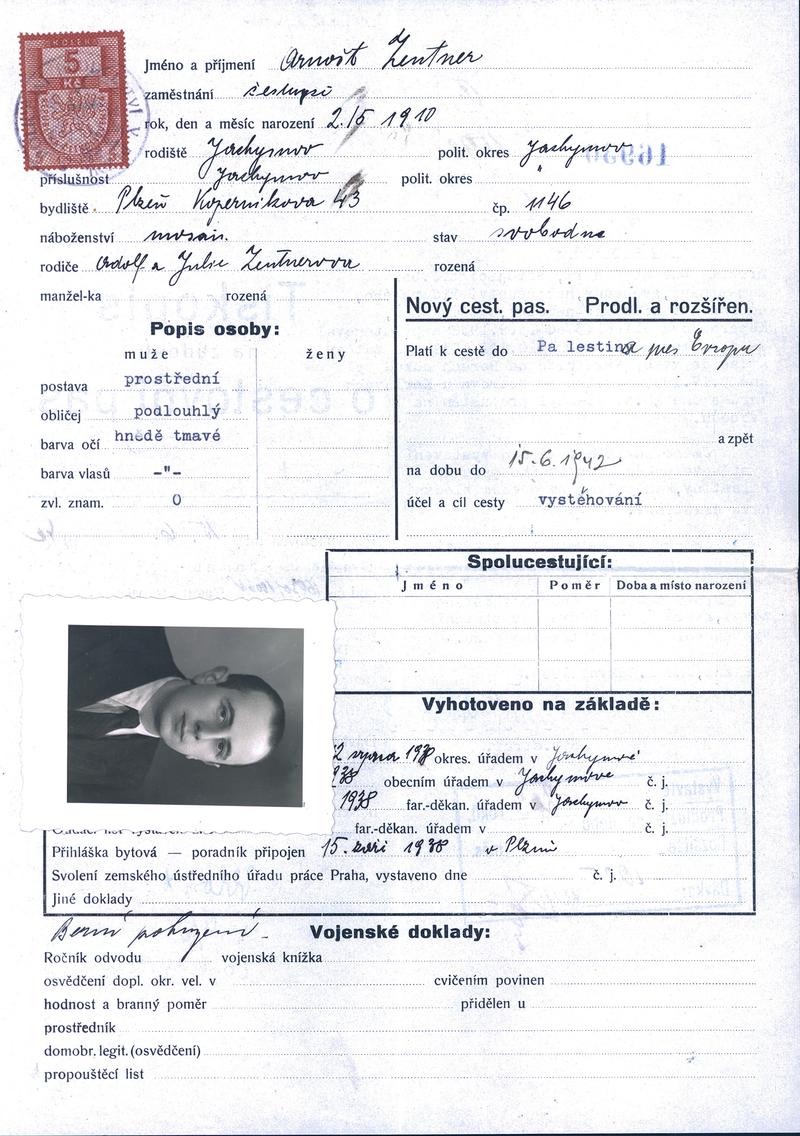 KOLEK
5
Kč
Jméno a příjmení Arnošt Zentner
zaměstnání
rok, den a měsíc narození 2./5 1910
rodiště Jáchymov polit. okres Jáchymov
příslušnost Jáchymov polit. okres "
bydliště Plzeň Koperníkova 43 čp. 1146
náboženství mosais. stav svobodný
rodiče Adolf a Julie Zentnerova rozená
manžel-ka rozená
Popis osoby:
muže ženy
postava prostřední
obličej podlouhlý
barva očí hnědě tmavé
barva vlasů -"-
zvl. znam. 0
Nový cest. pas. Prodl. a rozšířen.
Platí k cestě do Palestina přes Evropu
a zpět
na dobu do 15.6.1942
účel a cíl cesty vystěhování
Spolucestující:
Jméno Poměr Doba a místo narození
Vyhotoveno na základě:
srpna 1938 okres. úřadem v Jáchymově
1938 obecním úřadem v Jáchymově č. j.
1938 far.-děkan. úřadem v Jáchymov č. j.
far.-děkan. úřadem v č. j.
Přihláška bytová — poradník připojen 15. září 1938 v Plzni
Svolení zemského ústředního úřadu práce Praha, vystaveno dne č. j.
Jiné doklady
Berní potvrzení.
Vojenské doklady:
Ročník odvodu vojenská knížka
osvědčení dopl. okr. vel. v cvičením povinen
hodnost a branný poměr přidělen u
prostředník
domobr. legit. (osvědčení)
propouštěcí list